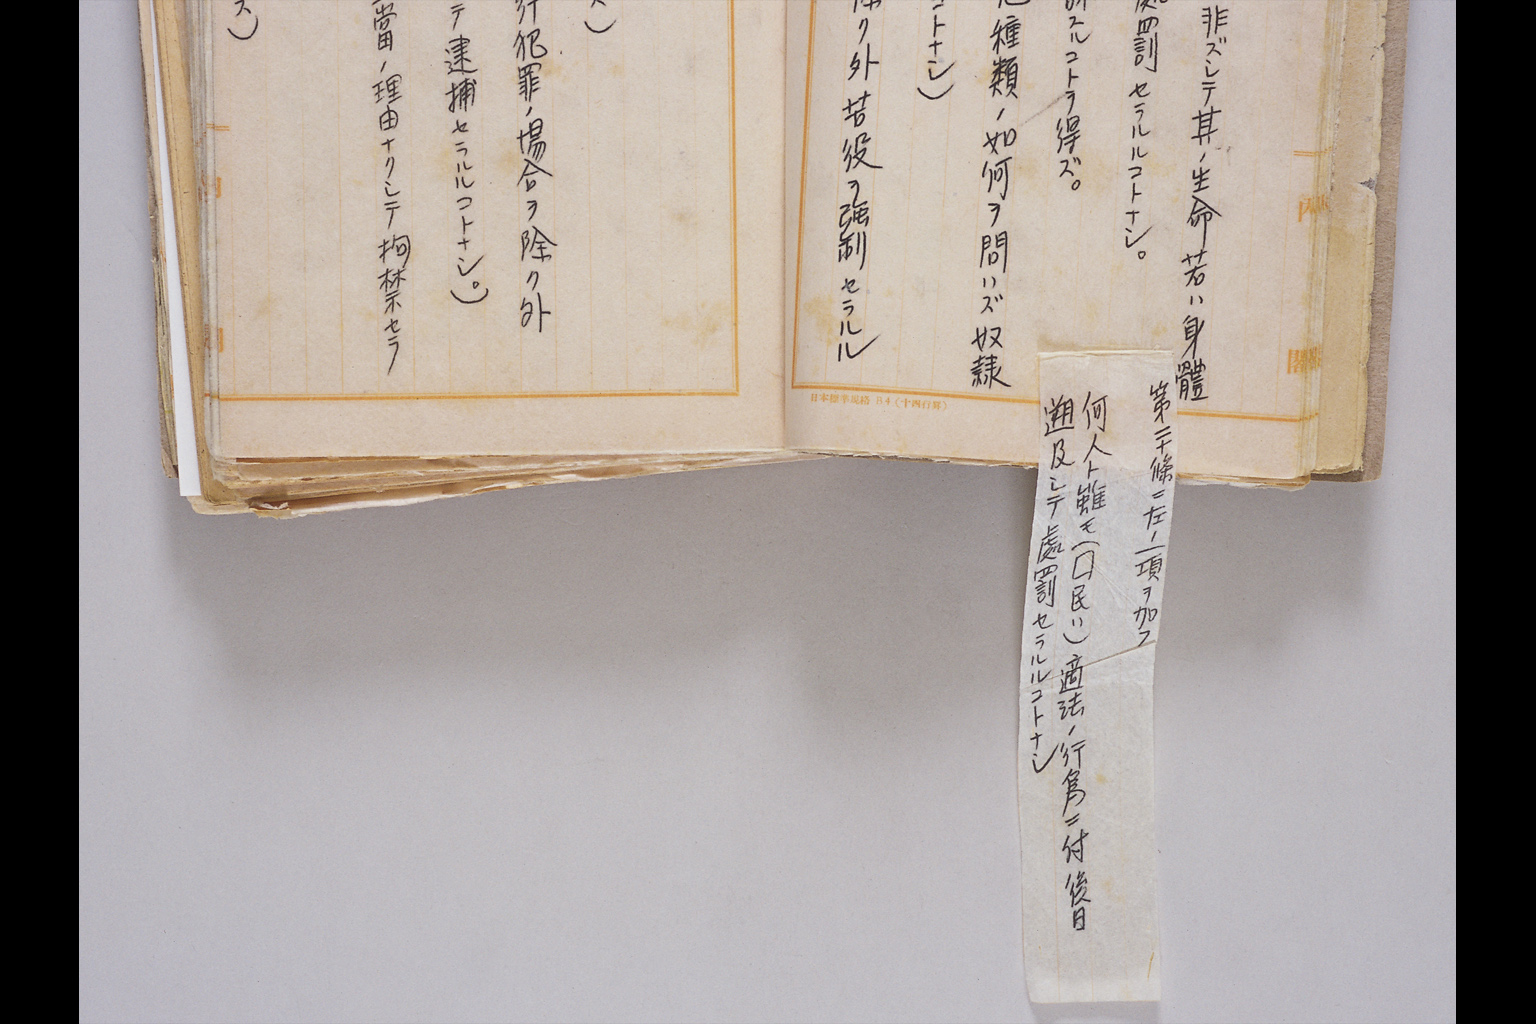 非ズシテ其ノ生命若ハ身體
處罰セラルルコトナシ。
訴スルコトヲ得ズ。
種類ノ如何ヲ問ハズ奴隷
コトナシ)
除ク外苦役ヲ強制セラルル
第三十條ニ左ノ一項ヲ加フ
何人ト雖モ(囗民ハ)適法ノ行爲ニ付後日
遡及シテ處罰セラルルコトナシ
日本標準規格 B4(十四行昇)
ス)
行犯罪ノ場合ヲ除ク外
テ逮捕セラルルコトナシ。)
當ノ理由ナクシテ拘禁セラ
ス)